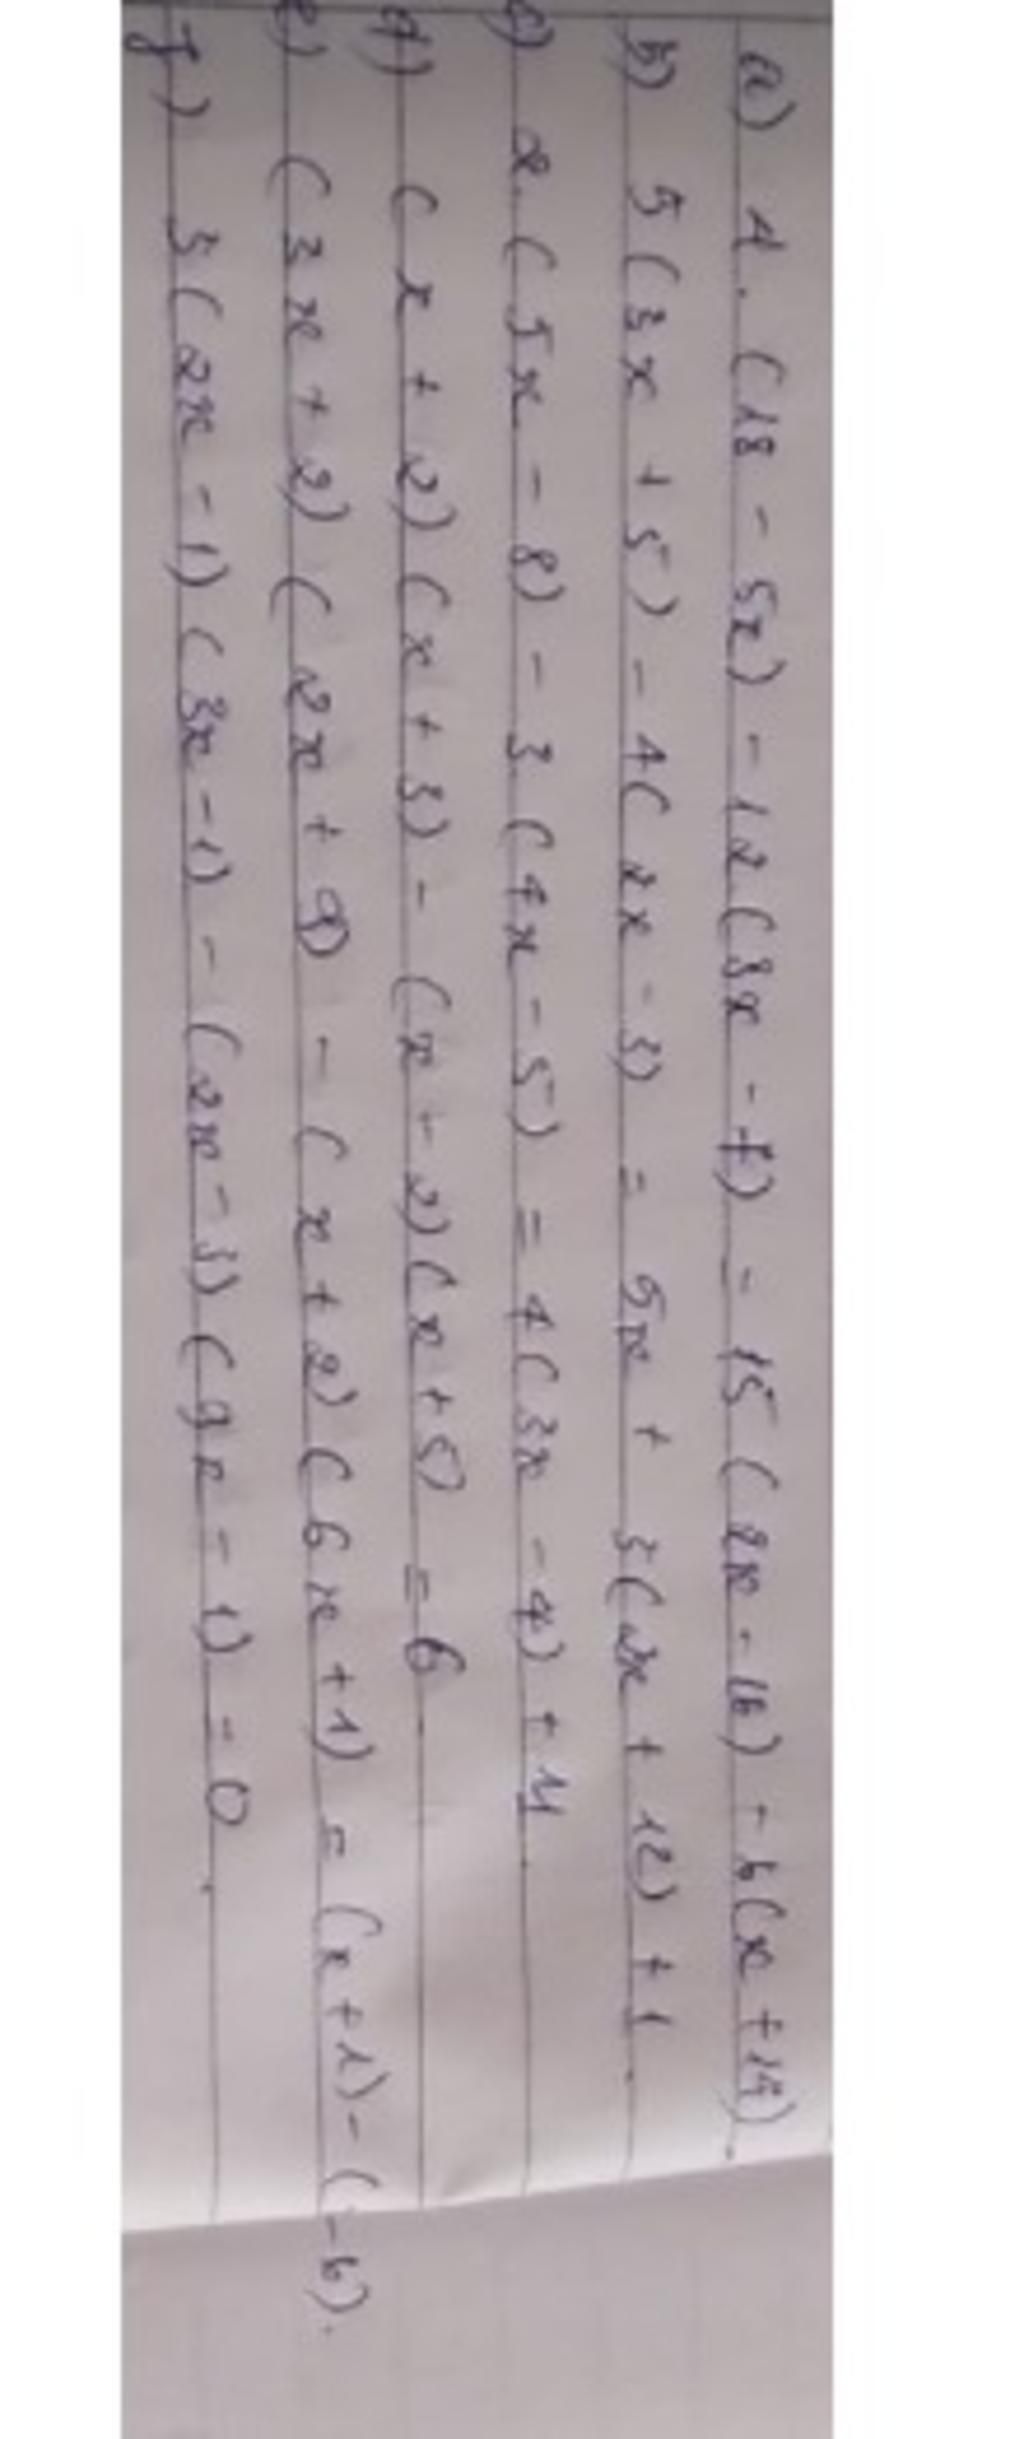 a) 4. (18 - 5x) - 12(3x - 7) = 15(2x - 16) - 6(x + 14).
b) 5(3x + 5) - 4(2x - 3) = 5x + 3(2x + 12) + 1.
c) 2. (5x - 8) - 3.(4x - 5) = 4(3x - 4) + 11.
d) (x + 2)(x + 3) - (x - 2)(x + 5) = 6
e) (3x + 2)(2x + 9) - (x + 2)(6x + 1) = (x + 1) - (-6).
f) 3(2x - 1)(3x - 1) - (2x - 3)(9x - 1) = 0.